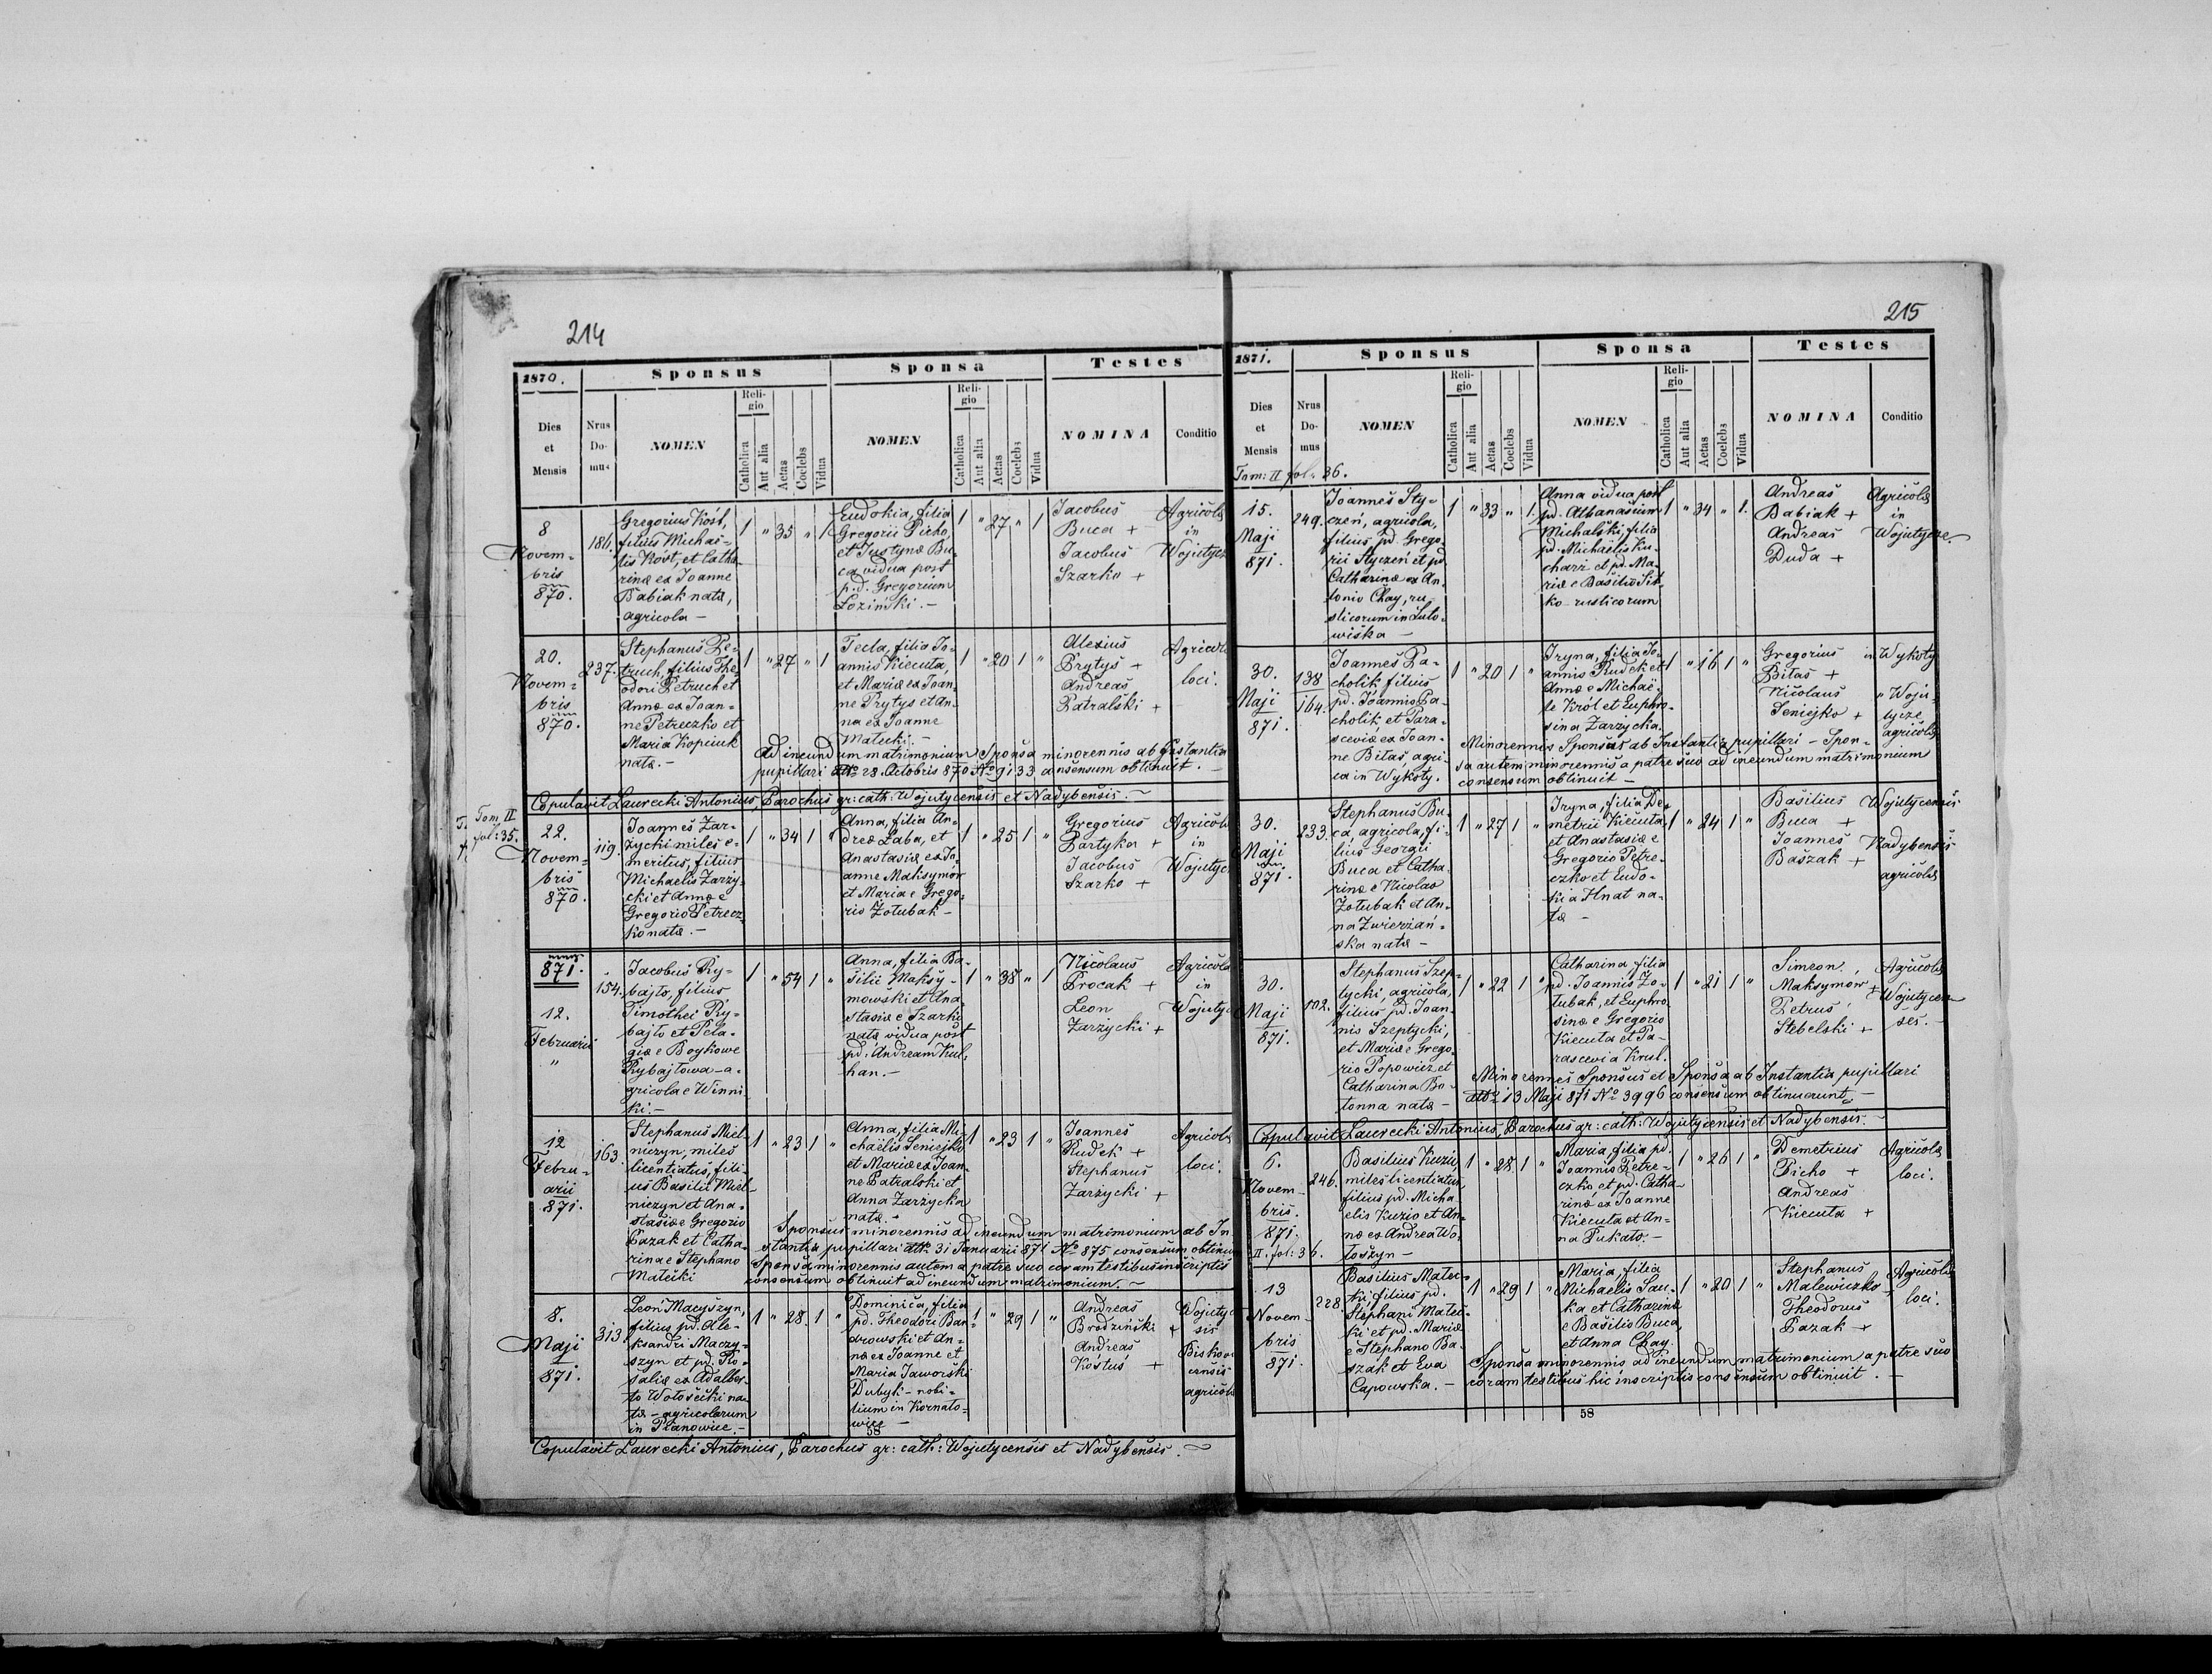 214
1870.
Sponsus
Sponsa
Testes
Dies et Mensis
Nrus Domus
NOMEN
Religio
Catholica
Aut alia
Aetas
Coelebs
Vidua
NOMEN
Religio
Catholica
Aut alia
Aetas
Coelebs
Vidua
NOMINA
Conditio
8
Novem=
bris
870.
186.
Gregorius Kóst,
filius Michae=
lis Kóst, et Catha-
rinæ ex Joanne
Babiak natæ,
agricola —
1 " 35 " 1
Eudokia, filia
Gregorii Picho,
et Justynæ Bu-
ca vidua post
p.d. Gregorium
Łozinski. —
1 " 27 " 1
Jacobus
Buca +
Jacobus
Szarko +
Agricolæ
in
Wojutycz
20.
Novem=
bris
870.
237.
Stephanus Pe-
truch, filius The-
odori Petruch et
Annæ ex Joan-
ne Petreczko et
Maria Kopciuk
nata. —
1 " 27 " 1
Tecla, filia Jo-
annis Kiecuta,
et Mariæ ex Joan-
ne Prytys et An-
na ex Joanne
Matecki. —
1 " 20 1 "
Alexius
Prytys +
Andreas
Patralski +
Agricolæ
loci.
Ad ineundum matrimonium Sponsa minorennis ab Instantia
pupillari dtto 28 Octobris 870 No 9133 consensum obtinuit. —
Copulavit Laurecki Antonius, Parochus gr: cath: Wojutycensis et Nadybensis. —
Tom II
fol: 35.
22.
Novem=
bris
870.
119.
Joannes Zar-
zycki miles e-
meritus, filius
Michaelis Zarzy-
cki et Annæ e
Gregorio Petrecz
ko natæ. —
1 " 34 1 "
Anna, filia An-
dreæ Żaba, et
Anastasiæ ex Jo-
anne Maksymow
et Maria e Grego-
rio Zołubak —
1 " 25 1 "
Gregorius
Partyka +
Jacobus
Szarko +
Agricolæ
in
Wojutyc
871.
12.
Februarii
"
154.
Jacobus Ry-
bajło, filius
Timothei Ry-
bajło et Pela-
giæ e Boykowe
Rybajłowa — a-
gricola e Winni-
ki. —
1 " 54 1 "
Anna, filia Ba-
silii Maksy-
mowski et Ana
stasiæ e Szarki
nata vidua post
pd. Andream Kul-
han. —
1 " 38 " 1
Nicolaus
Procak +
Leon
Zarzycki +
Agricolæ
in
Wojutyc
12
Febru-
arii
871.
163
Stephanus Miel-
niczyn, miles
licentiatus, fili-
us Basilii Miel-
niczyn et Ana-
stasiæ e Gregorio
Pazak et Catha-
rina e Stephano
Matecki
1 " 23 1 "
Anna, filia Mi-
chaelis Seniejko
et Mariæ ex Joan-
ne Patralski et
Anna Zarzycka
nata. —
1 " 23 1 "
Joannes
Rudek +
Stephanus
Zarzycki +
Agricolæ
loci.
Sponsus minorennis ad ineundum matrimonium ab In-
stantia pupillari dtto 31 Januarii 871 No 875 consensum obtinuit
Sponsa minorennis autem a patre suo coram testibus inscriptis
consensum obtinuit ad ineundum matrimonium. —
8.
Maji
871.
313
Leon Maczyszyn,
filius pd. Ale-
ksandri Maczy-
szyn et pd. Ro-
saliæ ex Adalber-
to Wołosecki na-
tæ — agricolarum
in Płanowice. —
1 " 28 1 "
Dominica, filia
pd. Theodori Ban-
drowski et An-
næ ex Joanne et
Maria Jaworski
Dubyk — nobi-
lium in Kornało-
wice —
1 " 29 1 "
Andreas
Brodziński +
Andreas
Kóstuś +
Wojutyc
sis
Biskow
censis
agricolæ
58
Copulavit Laurecki Antonius, Parochus gr: cath: Wojutycensis et Nadybensis. —
215
1871.
Sponsus
Sponsa
Testes
Dies et Mensis
Nrus Domus
NOMEN
Religio
Catholica
Aut alia
Aetas
Coelebs
Vidua
NOMEN
Religio
Catholica
Aut alia
Aetas
Coelebs
Vidua
NOMINA
Conditio
Tom: II fol: 36.
15.
Maji
871.
249.
Joannes Sty-
czeń, agricola,
filius pd. Grego-
rii Styczeń et pd
Catharinæ ex An-
tonio Chay, ru-
sticorum in Luto-
wiska —
1 " 33 " 1.
Anna vidua post
pd. Athanasium
Michalski, filia
pd. Michaelis Ku-
charz et pd. Ma-
riæ e Basilio Sit-
ko — rusticorum
1 " 34 " 1.
Andreas
Babiak +
Andreas
Duda +
Agricolæ
in
Wojutycze.
30.
Maji
871.
138
164.
Joannes Pa-
cholik filius
pd. Joannis Pa-
cholik et Para-
sceviæ ex Joan-
ne Bitas, agri-
ca in Wykoty.
1 " 20 1 "
Iryna, filia Jo-
annis Rudek et
Annæ e Michaë-
le Król et Euphro-
sina Zarzycka.
1 " 16 1 "
Gregorius
Bitas +
Nicolaus
Seniejko +
in Wykoty
" Woju-
tycze
agricolæ
Minorennis Sponsus ab Instantia pupillari — Spon-
sa autem minorennis a patre suo ad ineundum matrimonium
consensum obtinuit —
30.
Maji
871.
233.
Stephanus Bu-
ca, agricola, fi-
lius Georgii
Buca et Catha-
rinæ e Nicolao
Zołubak et An-
na Zwierzań-
ska natæ —
1 " 27 1 "
Iryna, filia De-
metrii Kiecuta
et Anastasiæ e
Gregorio Petre-
czko et Eudo-
kia Hnat na-
tæ —
1 " 24 1 "
Basilius
Buca +
Joannes
Baszak +
Wojutycensis
Nadybensis
agricolæ
30.
Maji
871.
102.
Stephanus Szep-
tycki, agricola,
filius pd. Joan-
nis Szeptycki,
et Mariæ e Grego-
rio Popowicz et
Catharina Bo-
tonna natæ —
1 " 22 1 "
Catharina filia
pd. Joannis Zo-
łubak, et Euphro-
sinæ e Gregorio
Kiecuta et Pa-
rascevia Krul.
1 " 21 1 "
Simeon
Maksymow +
Petrus
Stebelski +
Agricolæ
Wojutycen-
ses. —
Minorennes Sponsus et Sponsa ab Instantia pupillari
dtto 13 Maji 871 No 3996 consensum obtinuerunt. —
Copulavit Laurecki Antonius, Parochus gr: cath: Wojutycensis et Nadybensis. —
6.
Novem-
bris.
871.
II. fol: 36.
246.
Basilius Kuzio,
miles licentiatus,
filius pd. Micha-
elis Kuzio et An-
næ ex Andrea Wo-
łoszyn —
1 " 28 1 "
Maria, filia pd.
Joannis Petre-
czko, et pd. Catha-
rinæ ex Joanne
Kiecuta et An-
na Pukało. —
1 " 26 1 "
Demetrius
Picho +
Andreas
Kiecuta +
Agricolæ
loci.
13
Novem-
bris
871.
228.
Basilius Matec-
ki, filius pd.
Stephani Matec-
ki et pd. Mariæ
e Stephano Ba-
szak et Eva
Capowska. —
1 " 29 1 "
Maria, filia
Michaelis Sau-
ka et Catharinæ
e Basilio Buca,
et Anna Chay.
1 " 20 1 "
Stephanus
Malewiczko
Theodorus
Pazak +
Agricolæ
loci.
Sponsa minorennis ad ineundum matrimonium a patre suo
coram testibus hic inscriptis consensum obtinuit. —
58